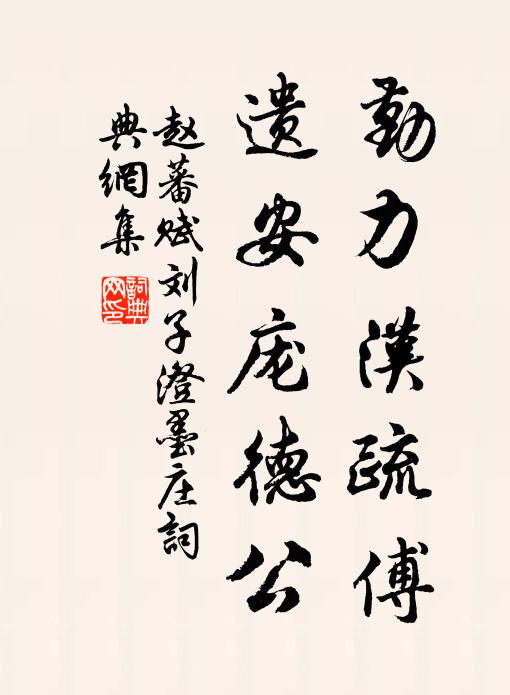 勤力漢疏傅
遺安庞德公
赵蕃赋刘子澄墨庄詞
典網集
詞典网印